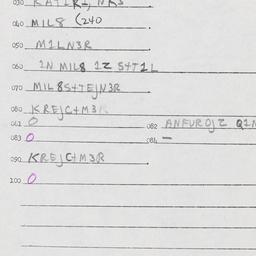 040 MIL8 (240
050 M1LN3R
060 1N MIL8 1Z S4T1L
070 MIL8S4TEJN3R
080 KREJC4M3R
081 O 082 ANFUROJZ Q1N
083 O 084 –
090 KREJC4M3R
100 O